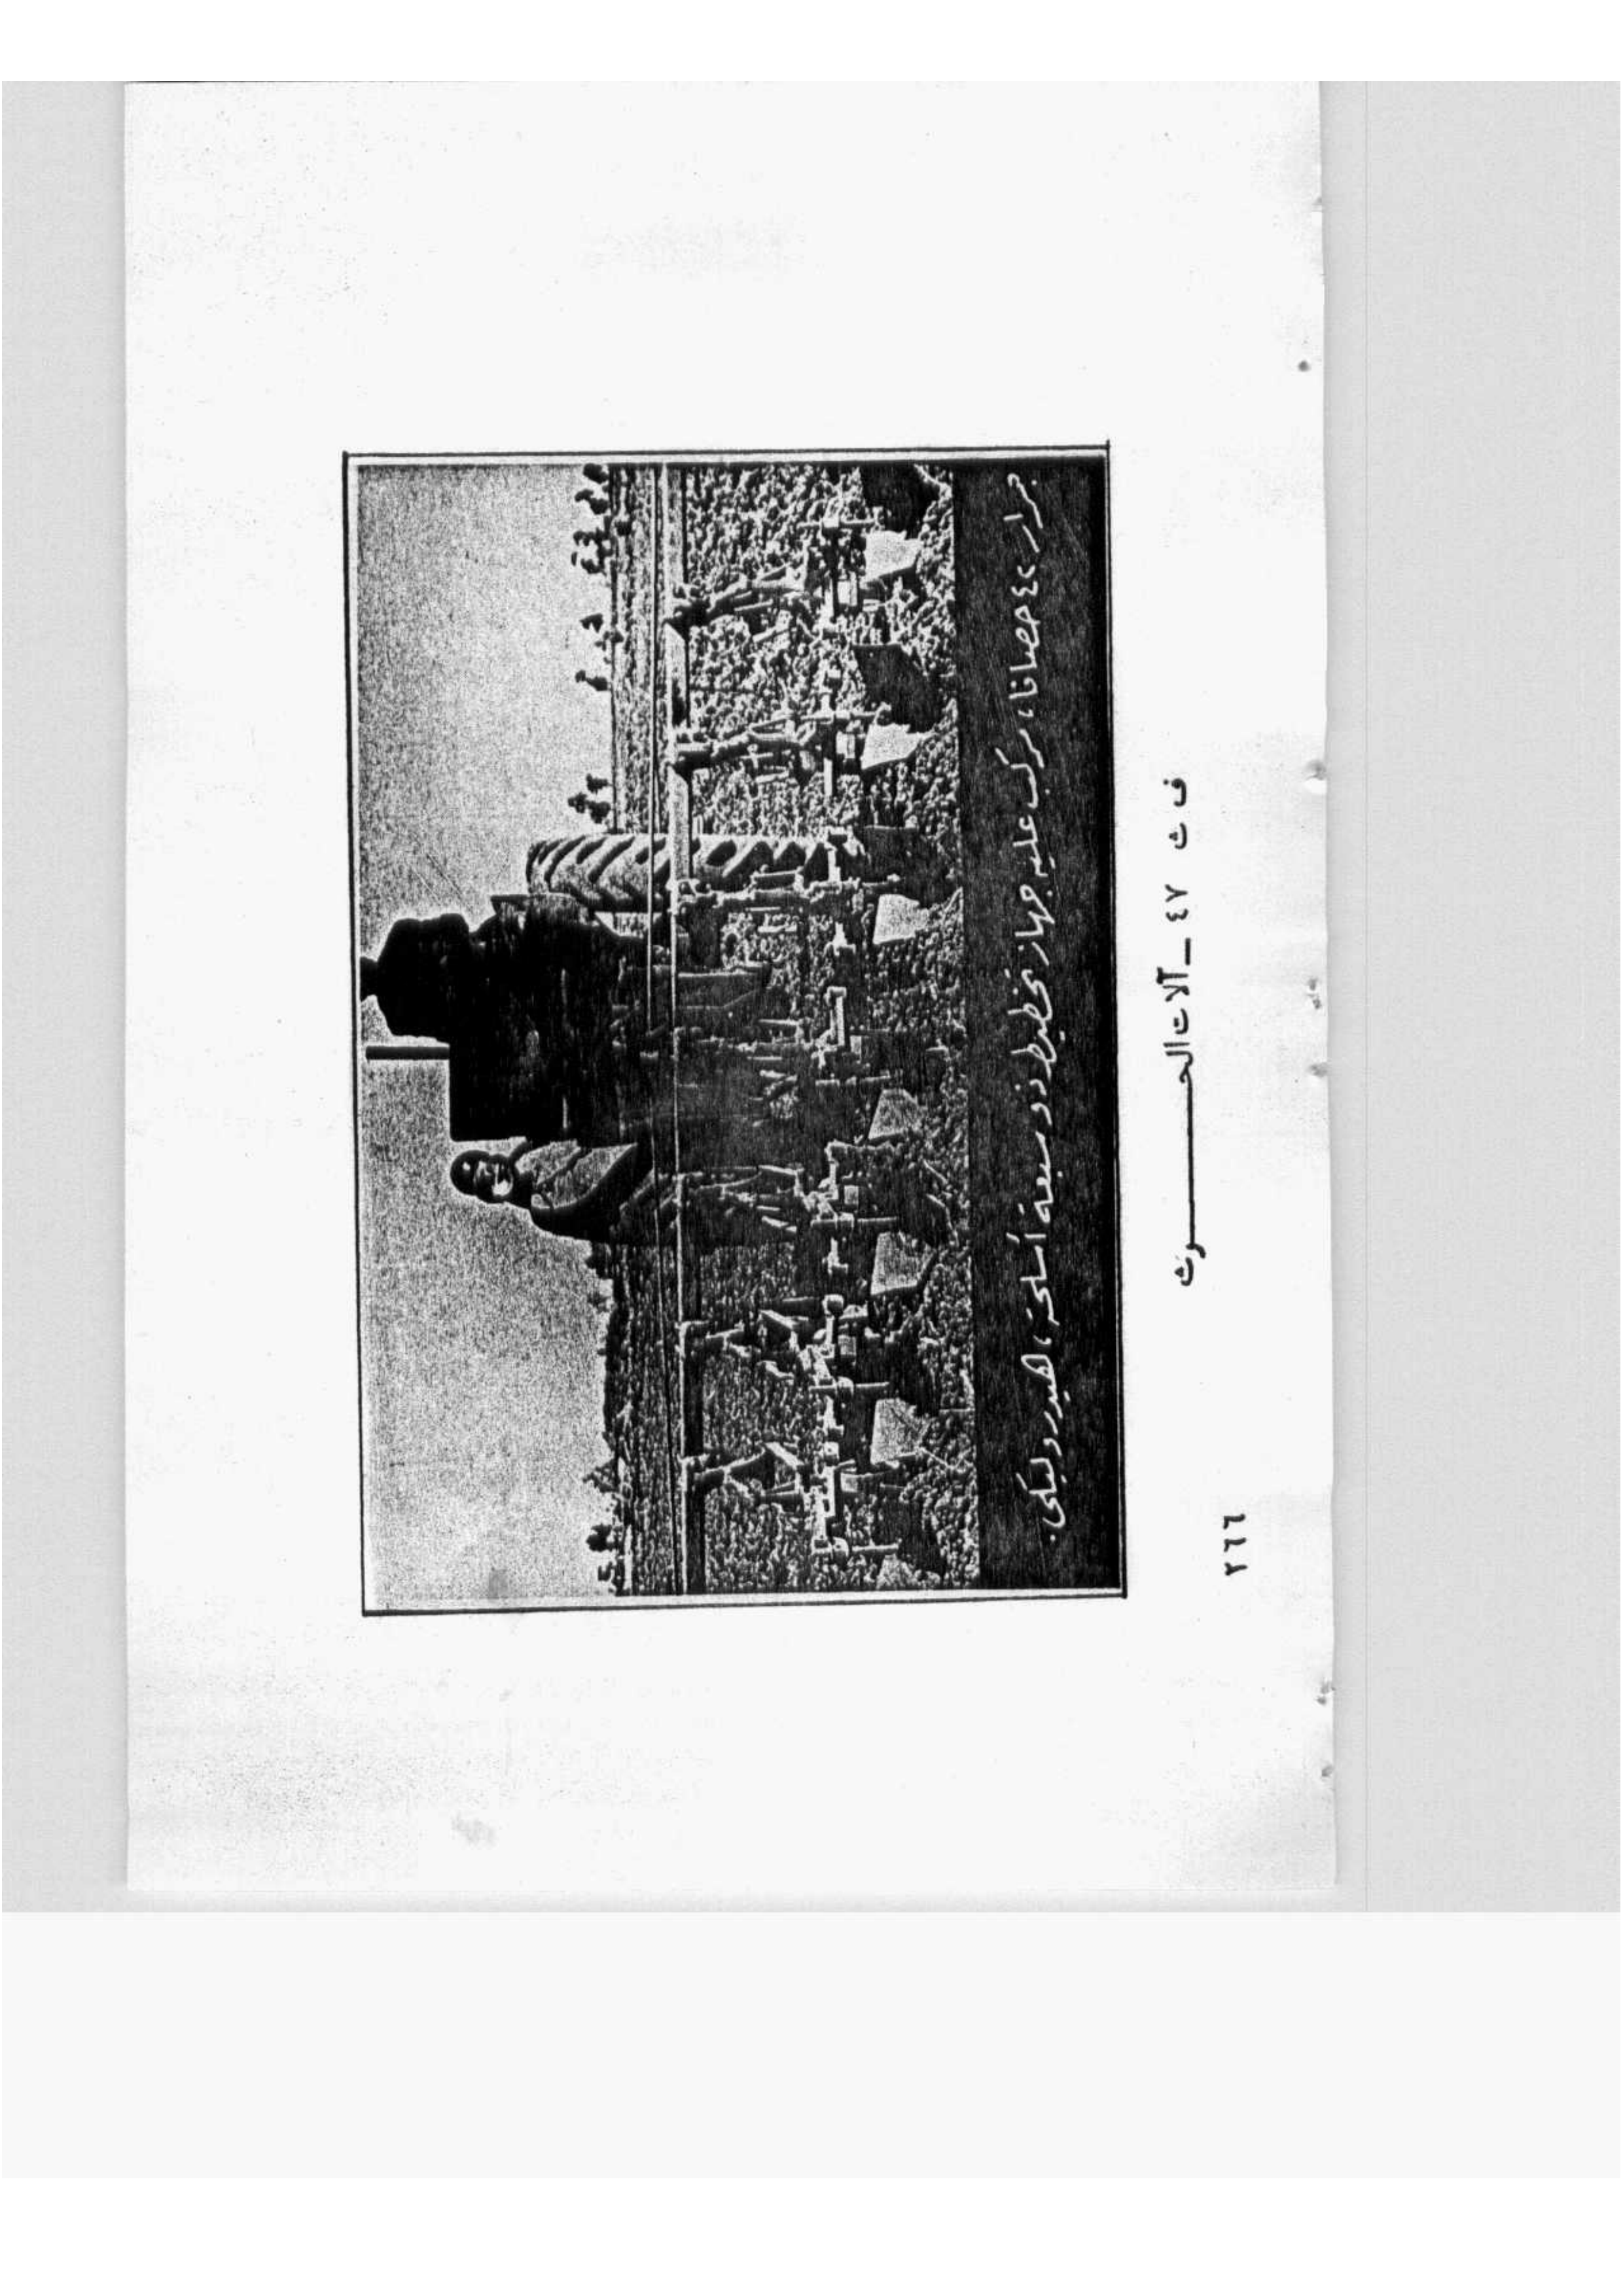 جرار ٤٤ حصانا، مركب عليه جهاز تخطيط ذو سبعة أسلحة، الهيدروليكى.
ف ث ٤٧ _ آلات الحـــــرث
٢٦٦